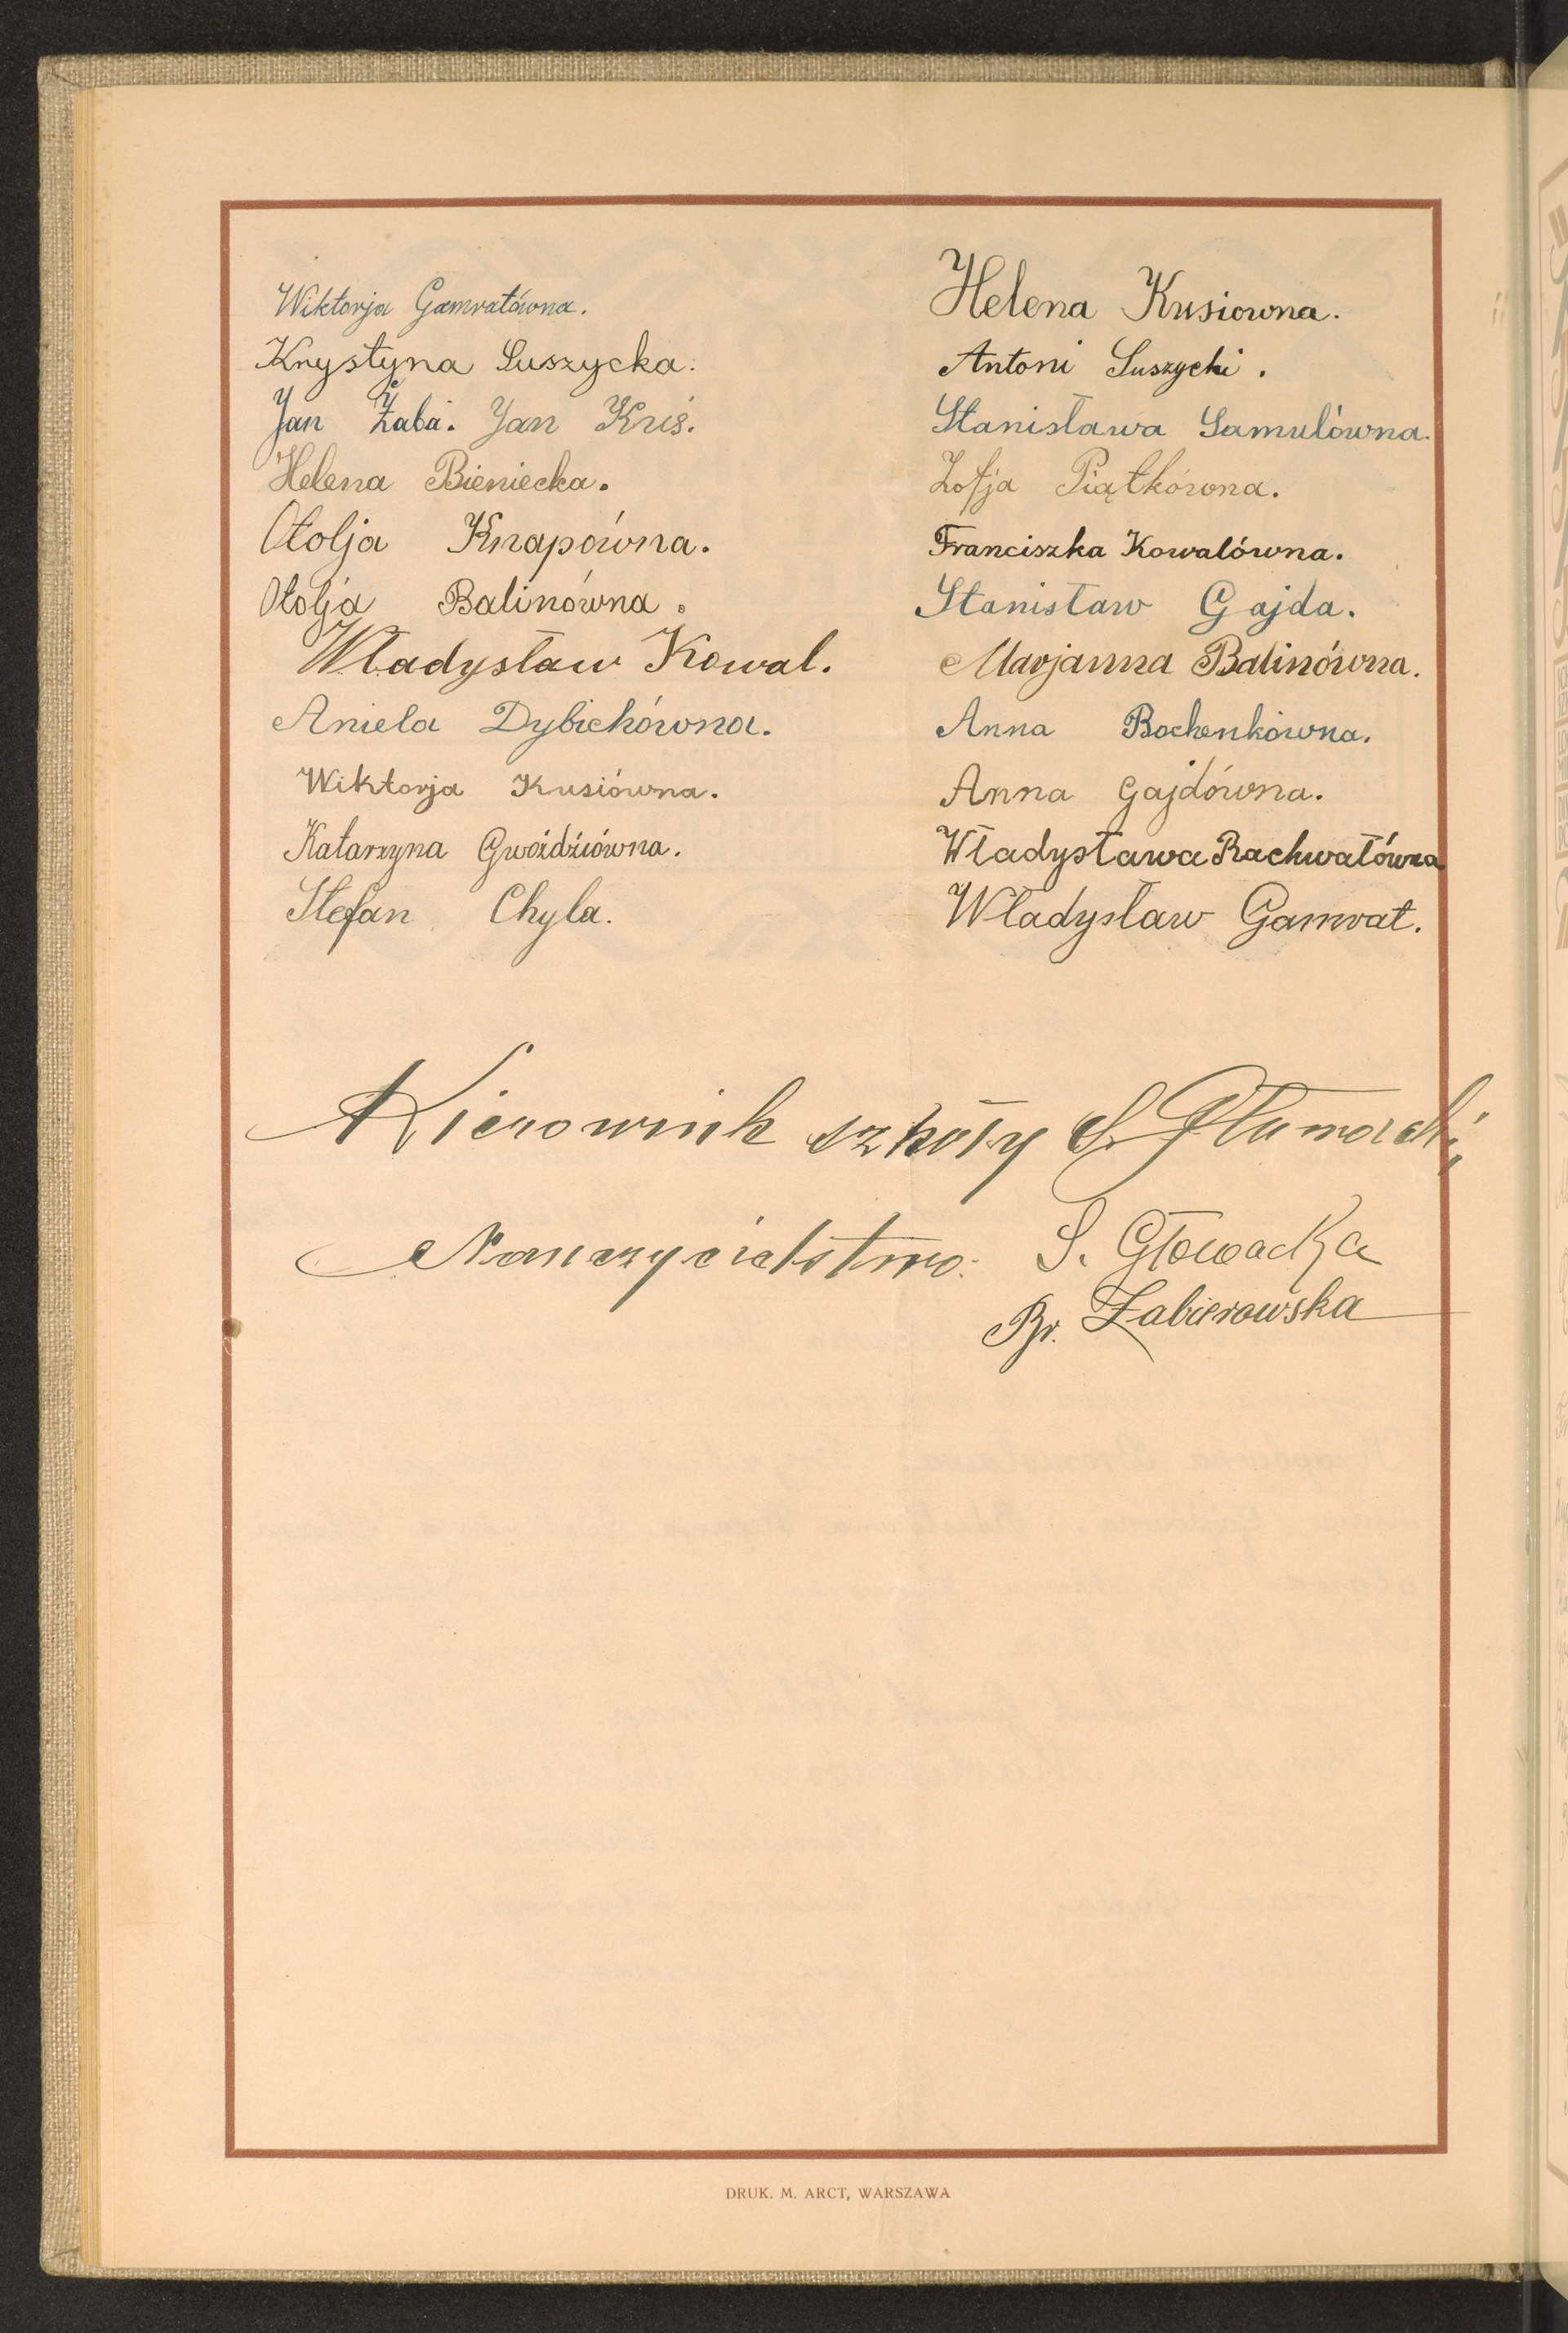 Wiktorja Gamratówna.
Krystyna Suszycka.
Jan Żaba. Jan Kriś.
Helena Bieniecka.
Otolja Knapówna.
Otolja Balinówna.
Władysław Kowal.
Aniela Dybichówna.
Wiktorja Kusiówna.
Katarzyna Gwoździówna.
Stefan Chyla.
Helena Kusiowna.
Antoni Suszycki.
Stanisława Samulówna.
Zofja Piątkówna.
Franciszka Kowalówna.
Stanisław Gajda.
Marjanna Balinówna.
Anna Bochenkówna.
Anna Gajdówna.
Władysława Rachwałówna
Władysław Gamrat.
Kierownik szkoły S.
Nauczycielstwo: S. Głowacka
Br. Zabierowska
DRUK. M. ARCT, WARSZAWA